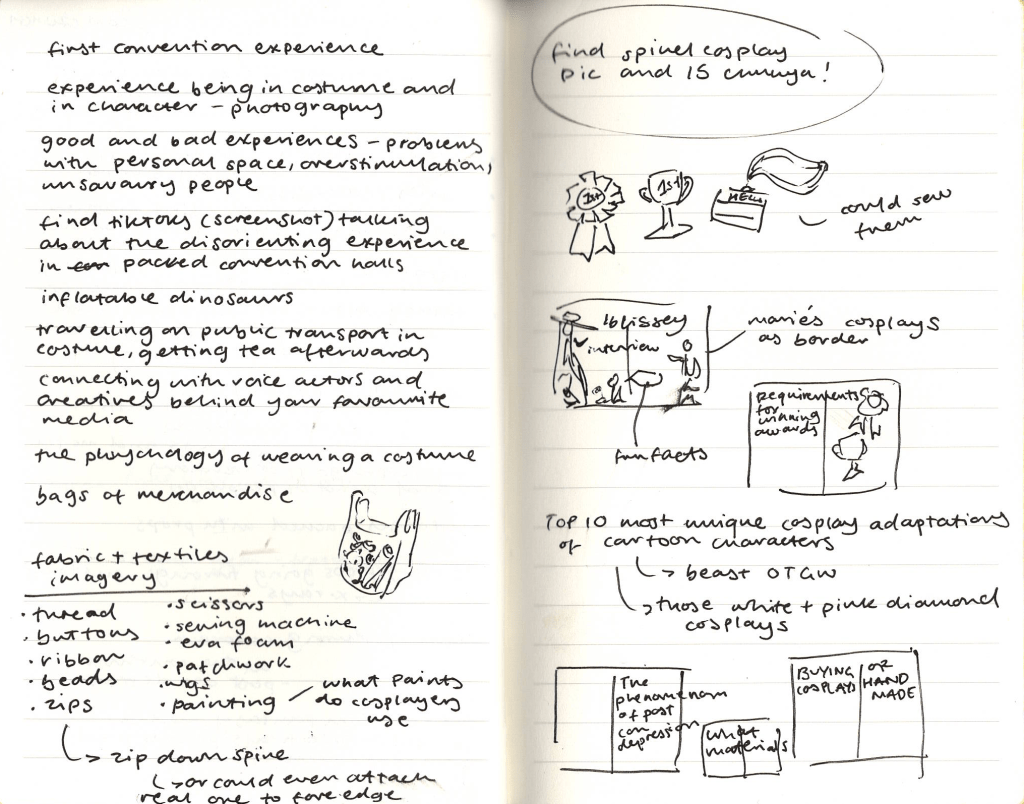 first convention experience
experience being in costume and
in character - photography
good and bad experiences - problems
with personal space, overstimulation,
unsavoury people
find tiktoks (screenshot) talking
about the disorienting experience
in packed convention halls
inflatable dinosaurs
travelling on public transport in
costume, getting tea afterwards
connecting with voice actors and
creatives behind your favourite
media
the phsychology of wearing a costume
bags of merchandise
fabric + textiles
imagery
· thread
· buttons
· ribbon
· beads
· zips
· scissors
· sewing machine
· eva foam
· patchwork
· wigs
· painting
what paints
do cosplayers
use
↳ zip down spine
↳ or could even attach
real one to fore edge
find spinel cosplay
pic and IS
1st
1st
could sew
them
blissey
interview
marie's cosplays
as border
fun facts
requirements
for winning
awards
TOP 10 most unique cosplay adaptations
of cartoon characters
↳ beast OTGW
↳ those white + pink diamond
cosplays
The
phenomenom
of post
con
depression
what
materials
BUYING
COSPLAYS
OR
HAND
MADE